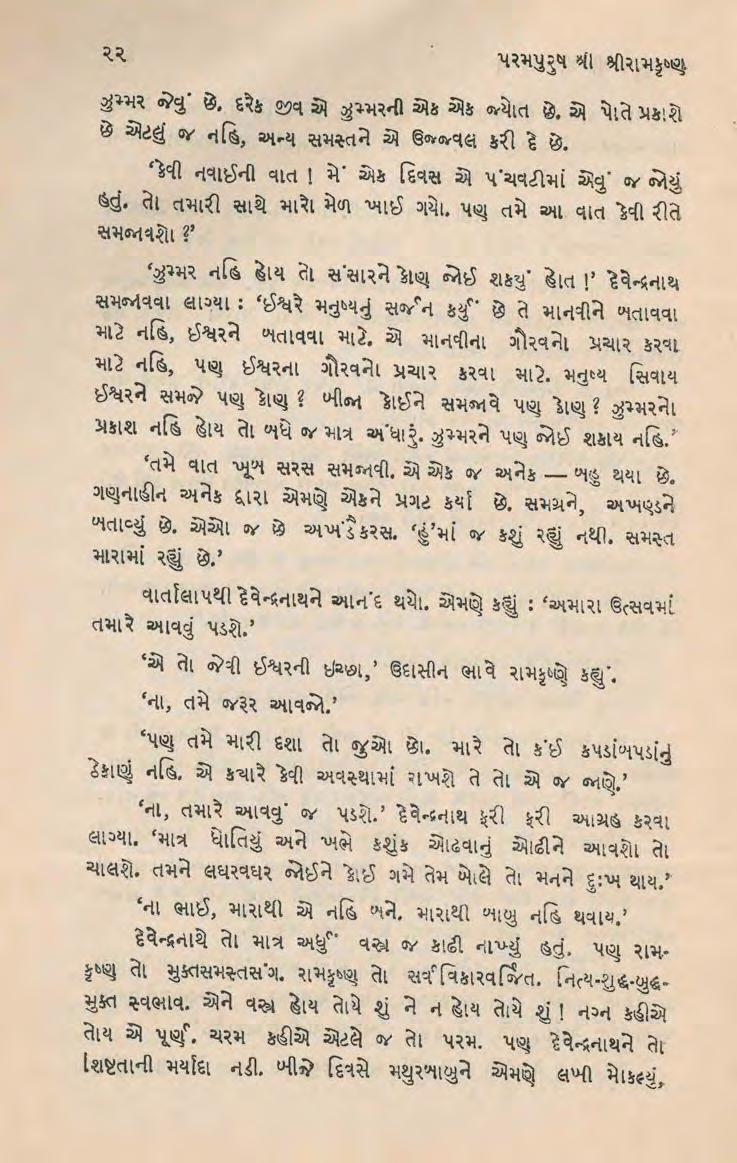 ૨૨
પરમપુરુષ શ્રી શ્રીરામકૃષ્ણ
ઝુમ્મર જેવું છે. દરેક જીવ એ ઝુમ્મરની એક એક જ્યોત છે. એ પોતે પ્રકાશે
છે એટલું જ નહિ, અન્ય સમસ્તને એ ઉજ્જવલ કરી દે છે.
‘કેવી નવાઈની વાત ! મેં એક દિવસ એ પંચવટીમાં એવું જ જોયું
હતું. તો તમારી સાથે મારો મેળ ખાઈ ગયો. પણ તમે આ વાત કેવી રીતે
સમજાવશો ?’
‘ઝુમ્મર નહિ હોય તો સંસારને કોણ જોઈ શકયું હોત !’ દેવેન્દ્રનાથ
સમજાવવા લાગ્યા : ‘ઈશ્વરે મનુષ્યનું સર્જન કર્યું છે તે માનવીને બતાવવા
માટે નહિ, ઈશ્વરને બતાવવા માટે. એ માનવીના ગૌરવનો પ્રચાર કરવા
માટે નહિ, પણ ઈશ્વરના ગૌરવનો પ્રચાર કરવા માટે. મનુષ્ય સિવાય
ઈશ્વરને સમજે પણ કોણ ? બીજા કોઈને સમજાવે પણ કોણ ? ઝુમ્મરનો
પ્રકાશ નહિ હોય તો બધે જ માત્ર અંધારું. ઝુમ્મરને પણ જોઈ શકાય નહિ.’
‘તમે વાત ખૂબ સરસ સમજાવી. એ એક જ અનેક — બહુ થયા છે.
ગણનાહીન અનેક દ્વારા એમણે એકને પ્રગટ કર્યા છે. સમગ્રને, અખણ્ડને
બતાવ્યું છે. એઓ જ છે અખંડૈકરસ. ‘હું’માં જ કશું રહ્યું નથી. સમસ્ત
મારામાં રહ્યું છે.’
વાર્તાલાપથી દેવેન્દ્રનાથને આનંદ થયો. એમણે કહ્યું : ‘અમારા ઉત્સવમાં
તમારે આવવું પડશે.’
‘એ તો જેવી ઈશ્વરની ઇચ્છા,’ ઉદાસીન ભાવે રામકૃષ્ણે કહ્યું.
‘ના, તમે જરૂર આવજો.’
‘પણ તમે મારી દશા તો જુઓ છો. મારે તો કંઈ કપડાંબપડાંનું
ઠેકાણું નહિ. એ કયારે કેવી અવસ્થામાં રાખશે તે તો એ જ જાણે.’
‘ના, તમારે આવવું જ પડશે.’ દેવેન્દ્રનાથ ફરી ફરી આગ્રહ કરવા
લાગ્યા. ‘માત્ર ધોતિયું અને ખભે કશુંક ઓઢવાનું ઓઢીને આવશો તો
ચાલશે. તમને લઘરવઘર જોઈને કોઈ ગમે તેમ બોલે તો મનને દુઃખ થાય.’
‘ના ભાઈ, મારાથી એ નહિ બને. મારાથી બાબુ નહિ થવાય.’
દેવેન્દ્રનાથે તો માત્ર અર્ધું વસ્ત્ર જ કાઢી નાખ્યું હતું. પણ રામ-
કૃષ્ણ તો મુક્તસમસ્તસંગ. રામકૃષ્ણ તો સર્વવિકારવર્જિત. નિત્ય-શુદ્ધ-બુદ્ધ-
મુક્ત સ્વભાવ. એને વસ્ત્ર હોય તોયે શું ને ન હોય તોયે શું ! નગ્ન કહીએ
તોય એ પૂર્ણ. ચરમ કહીએ એટલે જ તો પરમ. પણ દેવેન્દ્રનાથને તો
શિષ્ટતાની મર્યાદા નડી. બીજે દિવસે મથુરબાબુને એમણે લખી મોકલ્યું,